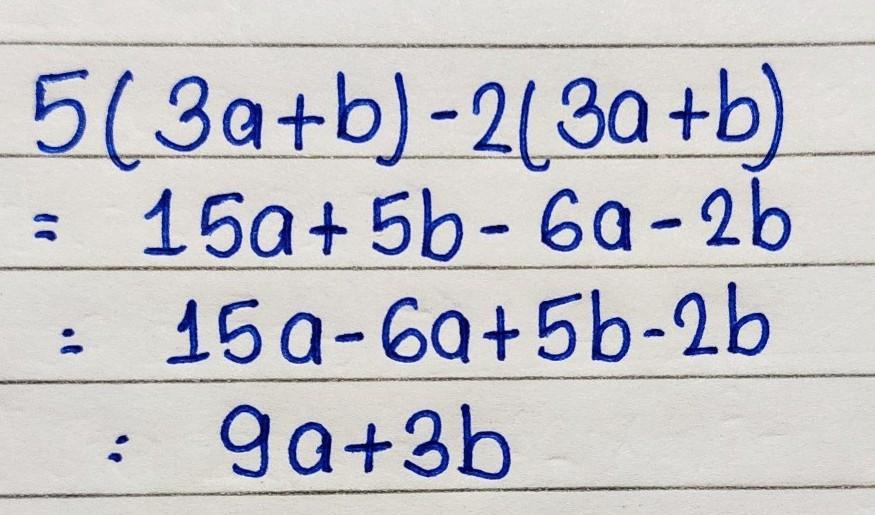 5(3a+b)-2(3a+b)
= 15a+5b-6a-2b
= 15a-6a+5b-2b
= 9a+3b